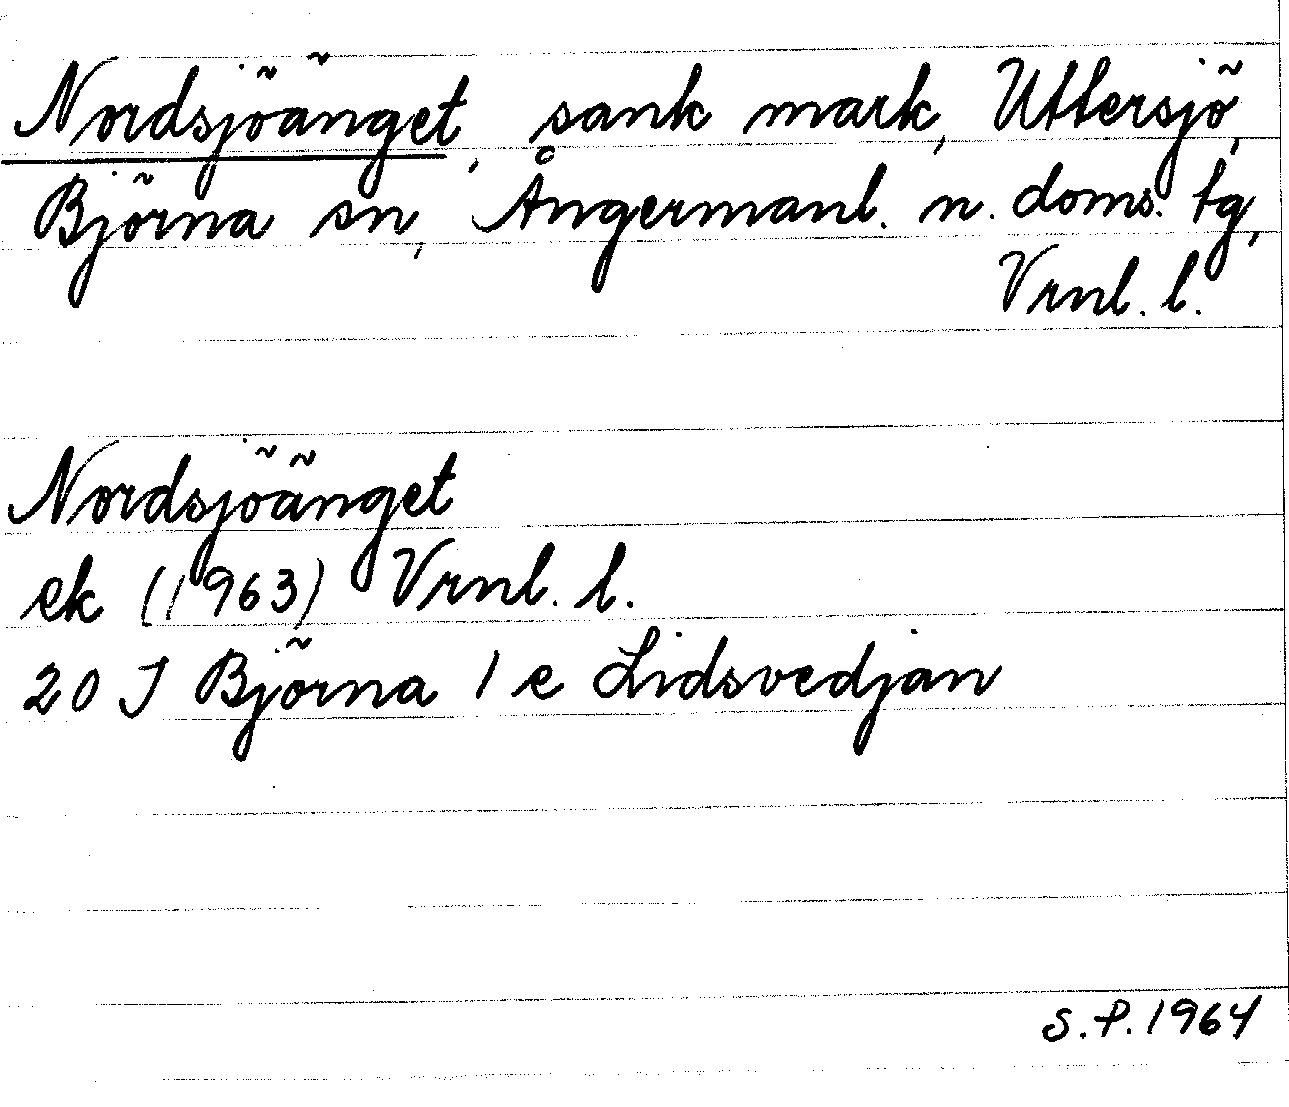 Nordsjöänget, sank mark, Uttersjö,
Björna sn, Ångermanl. n. doms. tg,
Vrnl. l.
Nordsjöänget
ek (1963) Vrnl. l.
20 J Björna 1 e Lidsvedjan
S.P. 1964